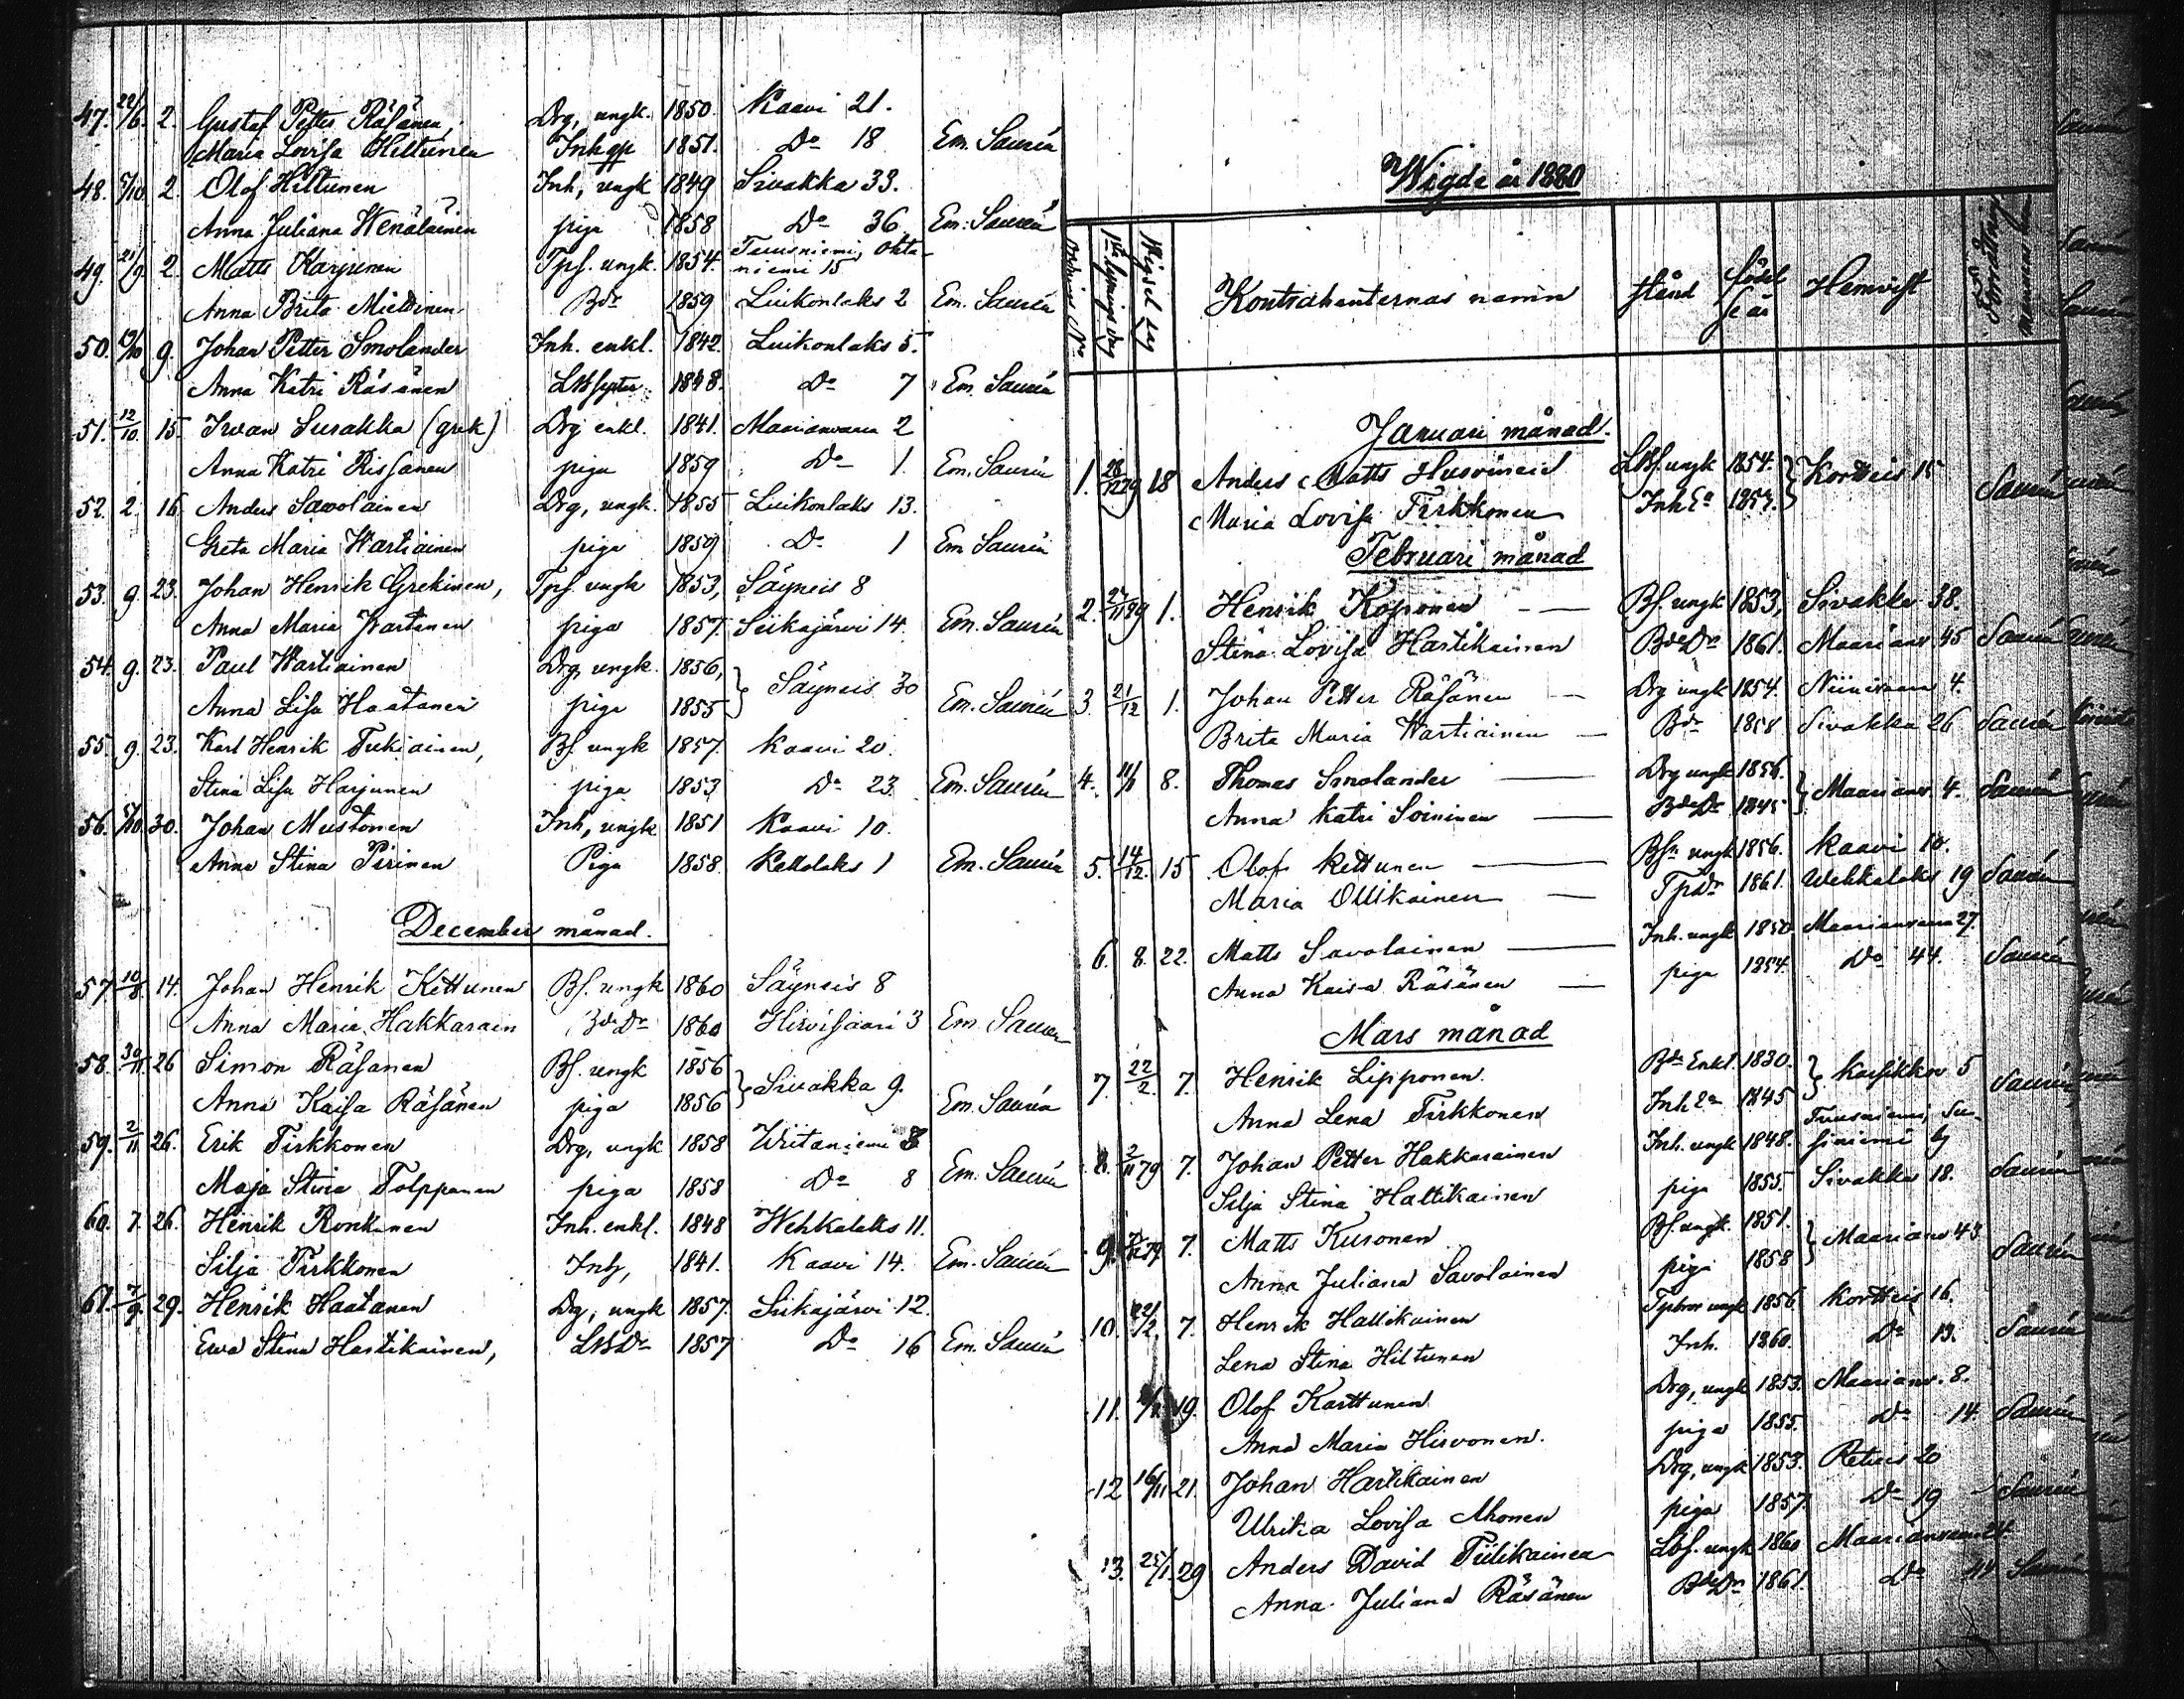 47. 22/6. 2. Gustaf Petter Räsänen, Drg, ungk. 1850. Kaavi 21.
Maria Lovisa Hiltunen Inh 1851. Do 18 Em. Saurén
48. 5/10. 2. Olof Hiltunen Inh, ungk 1849 Sivakka 33.
Anna Juliana Wenäläinen piga 1858 Do 36 Em. Saurén
49. 21/9. 2. Matts Karjunen Tps. ungk. 1854. Tuusniemi, Ohta-
niemi 15
Anna Brita Miettinen Bdr 1859 Luikonlaks 2 Em. Saurén
50. 9. Johan Petter Smolander Inh. enkl. 1842. Luikonlaks 5.
Anna Katri Räsänen 1848. Do 7 Em. Saurén
51. 12/10. 15. Iwan Surakka (grek) Drg enkl. 1841. Maarianvaara 2
Anna Katri Rissanen piga 1859 Do 1. Em. Saurén
52. 2. 16. Anders Sawolainen Drg, ungk. 1855 Luikonlaks 13.
Greta Maria Wartiainen piga 1859 Do 1 Em Saurén
53. 9. 23. Johan Henrik Grekinen, Tps. ungk 1853, Säyneis 8
Anna Maria Kartanen piga 1857. Siikajärvi 14. Em. Saurén
54. 9. 23. Paul Wartiainen Drg, ungk. 1856,
Säyneis 30
Anna Lisa Haatanen piga 1855 Em. Saurén
55. 9. 23. Karl Henrik Tukiainen, Bs. ungk 1857. Kaavi 20.
Stina Lisa Harjunen piga 1853 Do 23 Em. Saurén
56. 5/10. 30. Johan Mustonen Inh, ungk 1851 Kaavi 10.
Anna Stina Pirinen Piga 1858. Kettolaks 1 Em. Saurén
December månad.
57. 10/8. 14. Johan Henrik Kettunen Bs. ungk 1860 Säyneis 8
Anna Maria Hakkarain Bde Dr 1860 Hirvisaari 3 Em. Saurén
58. 30/11. 26 Simon Räsänen Bs. ungk 1856
Sivakka 9.
Anna Kaisa Räsänen piga 1856 Em. Saurén
59. 2/11 26. Erik Tirkkonen Drg, ungk 1858 Wiitaniemi 8
Maja Stina Tolppanen piga 1858 Do 8 Em. Saurén
60. 7. 26. Henrik Ronkanen Inh. enkl. 1848 Wehkalaks 11.
Silja Tirkkonen Inh, 1841. Kaavi 14. Em. Saurén
61. 7/9. 29. Henrik Haatanen Drg, ungk 1857. Siikajärvi 12.
Ewa Stina Hartikainen, Lbs Dr 1857 Do 16 Em. Saurén
Wigde år 1880
Ordnings No
1sta lysnings dag
Wigsel dag
Kontrahenternas namn
stånd
födel
se år
Hemvist
Förrättnings
mannens
Januari månad.
1. 28/12 79 18 Anders Matts Lbs. ungk 1854. Kortteis 15
Maria Lovisa Tirkkonen Inh Ea 1857. Saurén
Februari månad
2. 1. Henrik Koponen Bs. ungk 1853, Sivakka 38.
Stina Lovisa Hartikainen Bde Dr 1861. Maarianv 45 Saurén
3. 21/12 1. Johan Petter Räsänen Drg ungk 1854. Niinivaara 4.
Brita Maria Wartiainen Bdr 1858 Sivakka 26 Saurén
4. 11/1 8. Thomas Smolander Drg ungk 1856.
Maarianv 4. Saurén
Anna Katri Soininen Bde Dr 1845
5. 14/12. 15 Olof Kettunen Bsn ungk 1856. Kaavi 10.
Maria Ollikainen Tpdr 1861. Wehkalaks 19 Saurén
6. 8. 22. Matts Savolainen Inh. ungk 1850 Maarianvaara 27.
Anna Kaisa Räsänen piga 1854. Do 44. Saurén
Mars månad
7. 22/2. 7. Henrik Lipponen. Bde Enkl. 1830.
Kasikko 5 Saurén
Anna Lena Tirkkonen Inh Ea 1845
Tuusniemi, Su-
8. 2/11 79 7. Johan Petter Hakkarainen Inh. ungk 1848. siniemi by
Silja Stina Hallikainen piga 1855. Sivakka 18. Saurén
9. 7. Matts Kuronen Bs. ungk. 1851.
Maarianv 43
Anna Juliana Savolainen piga 1858 Saurén
10. 22/2. 7. Henrik Hallikainen ungk 1856 Kortteis 16.
Lena Stina Hiltunen Inh. 1860. Do 13. Saurén
11. 19. Olof Karttunen Drg, ungk 1853. Maarianv. 8.
Anna Maria Hirvonen. piga 1855. Do 14. Saurén
12 16/11 21. Johan Hartikainen Drg, ungk 1853. Retuis 20
Ulrika Lovisa Ahonen piga 1857. Do 19 Saurén
13. 25/1. 29 Anders David Tiilikainen Lbs. ungk 1860 Maarianvaara 24.
Anna Juliana Räsänen Bde Dr 1861. Do 44 Saurén